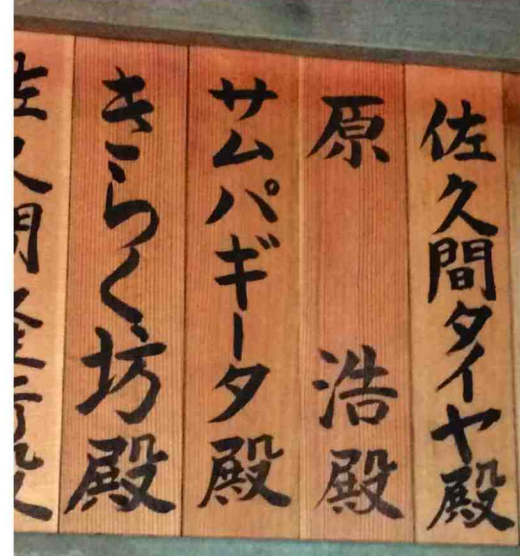 佐久間タイヤ殿
原 浩殿
サムパギータ殿
きらく坊殿
佐久間